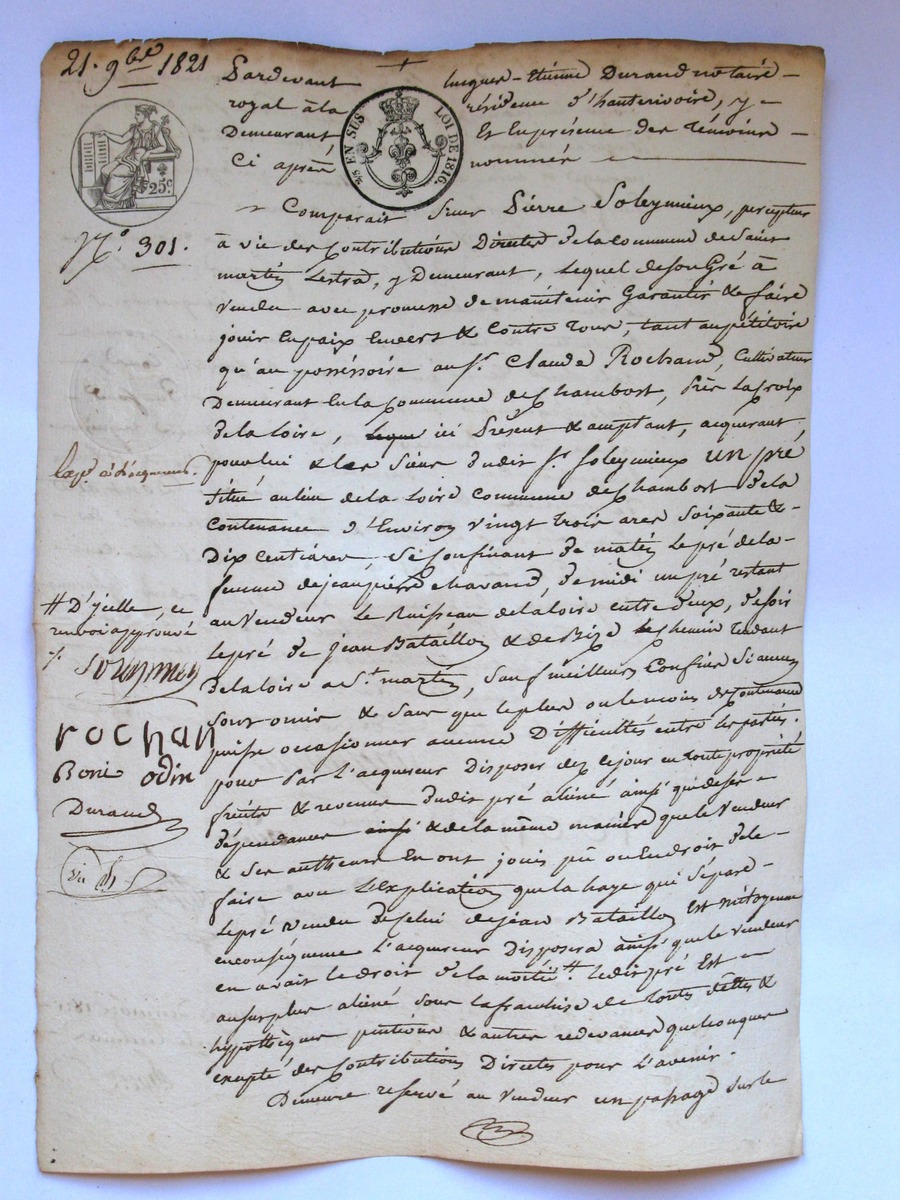 21. 9bre 1821
Pardevant Jacques-Etienne Durand notaire
royal à la résidence d'hauterivoire, y
Demeurant Et En présence des témoins
Ci après nommés
25c.
4/5 EN SUS
LOI DE 1816.
N° 301.
Comparait Sieur Pierre Soleymieux, percepteur
à vie des Contributions Directes de la Commune de Saint
martin Lestra, y Demeurant, Lequel de son Gré à
Vendu avec promesse de maintenir Garantir & faire
jouir En paix Envers & Contre Tous, tant au pétitoire
qu'au possessoire au Sr. Claude Rochand, Cultivateur
Demeurant En la Commune de Chambost, près La Croix
de la Loire, ici Présent & acceptant, acquerant
pour lui & les Siens dudit Sr. Soleymieux un pré
Situé au lieu de la Loire Commune de Chambost de la
Contenance d'Environ Vingt Trois ares Soixante &
Dix Centiares, Se Confinant de matin Le pré de la
femme de jean pierre Chavand, de midi un pré restant
au Vendeur Le Ruisseau de la Loire entre deux, de soir
Le pré de jean Bataillon & de Bize Le Chemin Tendant
de la Loire a St. martin, Sauf meilleurs Confins Si aucuns
Sont omis & Sans que Le plus ou le moins de Contenance
puisse occasionner aucune Difficultés entre Les parties.
pour Par L'acquereur Disposer dez Ce jour en toute propriété
fruits & revenus dudit pré aliéné ainsi que de ses
dépendances & de la même manière que le Vendeur
& Ses autheurs En ont jouis pû ou En droit de le
faire avec L'Explication que la haye qui Sépare
Le pré Vendu de Celui de jean Bataillon Est mitoyenne
en conséquence L'acquereur Disposera ainsi que le Vendeur
en avait le droit de la moitié #. Le dit pré Est
au surplus aliéné Sous La franchise de Toute dettes &
hypothèques pentions & autres redevances quelconques
excepté des Contributions Directes pour L'avenir.
Demeure reservé au Vendeur un passage Sur le
# D'ycelle, ce
renvoi approuvé
rochan
Boni odin
Durand